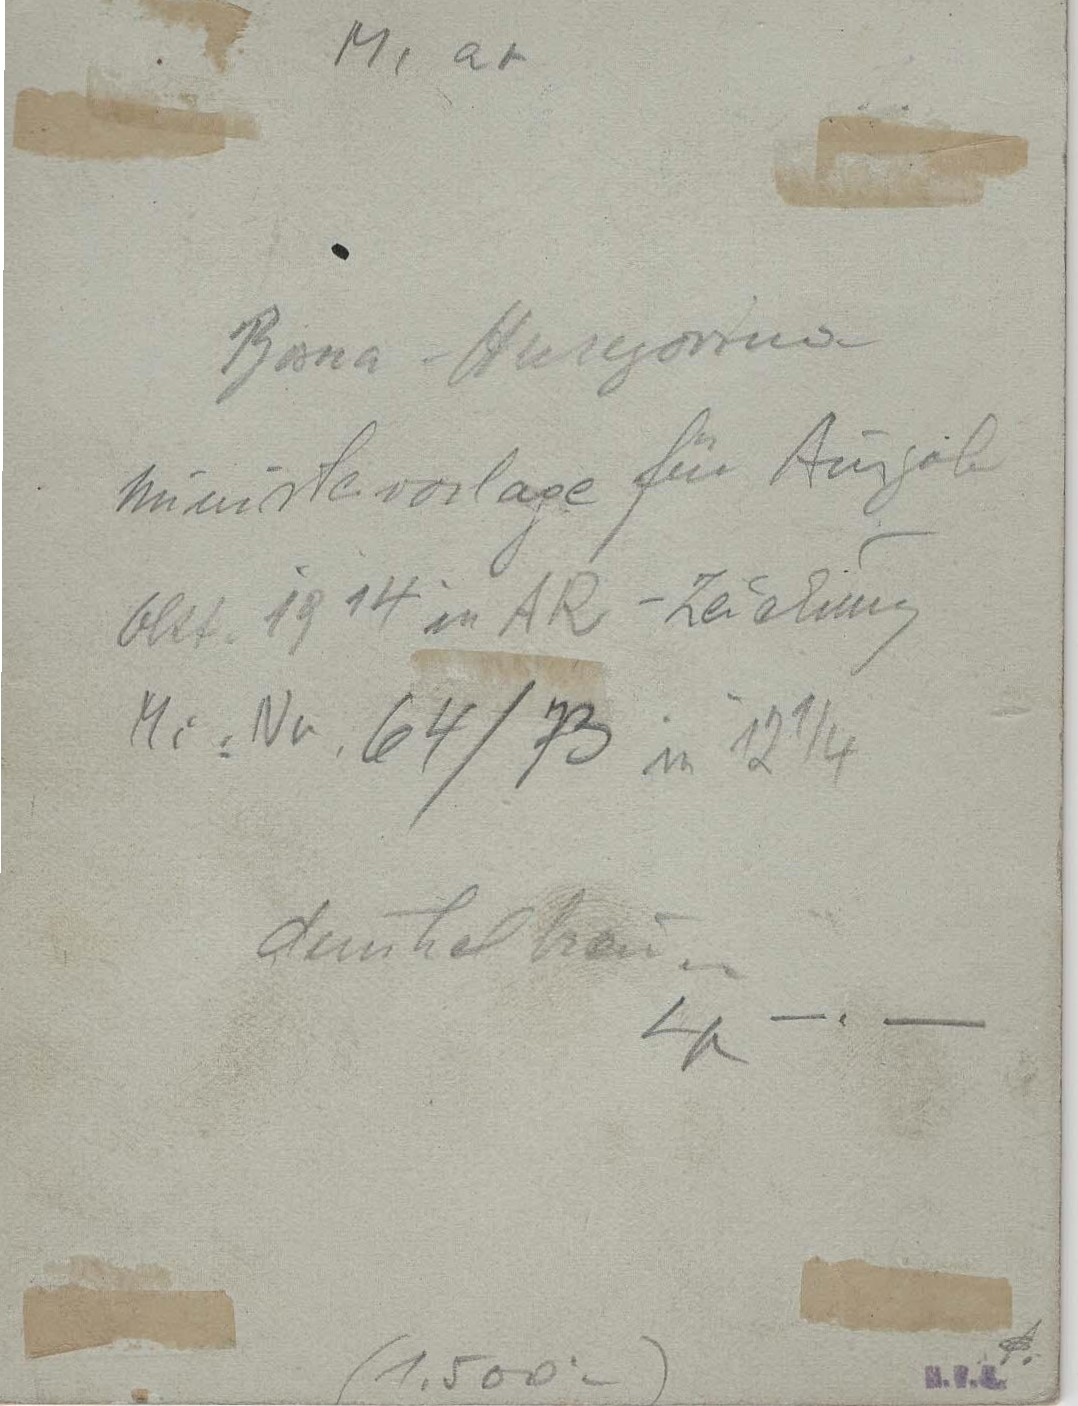 Bosna - Herzegovina
Ministervorlage für Ausgabe
Okt. 1914 in AR - Zeichnung
Mi: Nr. 64/73 in 12 1/4
dunkelbraun
(1.500.-)